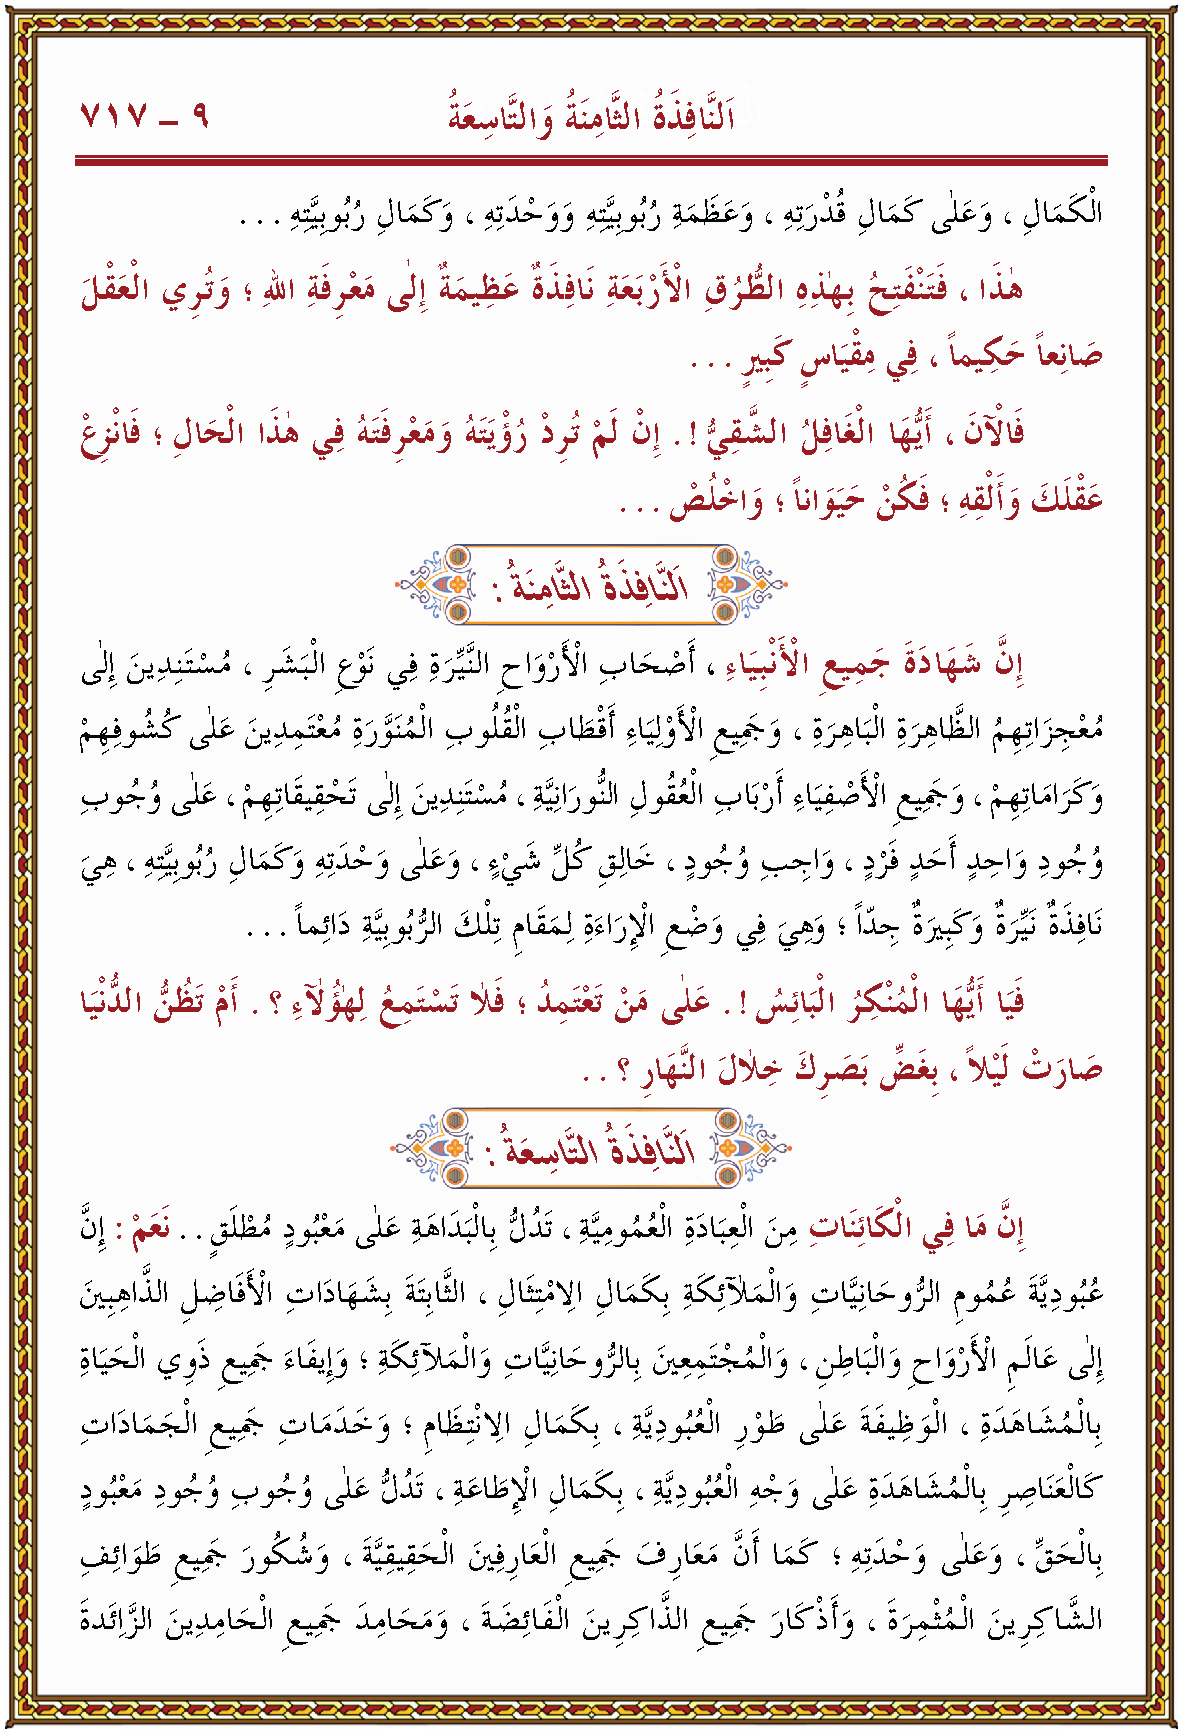 اَلنَّافِذَةُ الثَّامِنَةُ وَالتَّاسِعَةُ ٩ – ٧١٧
الْكَمَالِ ، وَعَلٰى كَمَالِ قُدْرَتِهِ ، وَعَظَمَةِ رُبُوبِيَّتِهِ وَوَحْدَتِهِ ، وَكَمَالِ رُبُوبِيَّتِهِ . . .
هٰذَا ، فَتَنْفَتِحُ بِهٰذِهِ الطُّرُقِ الْأَرْبَعَةِ نَافِذَةٌ عَظِيمَةٌ إِلٰى مَعْرِفَةِ اللهِ ؛ وَتُرِي الْعَقْلَ
صَانِعاً حَكِيماً ، فِي مِقْيَاسٍ كَبِيرٍ . . .
فَالْآنَ ، أَيُّهَا الْغَافِلُ الشَّقِيُّ ! . إِنْ لَمْ تُرِدْ رُؤْيَتَهُ وَمَعْرِفَتَهُ فِي هٰذَا الْحَالِ ؛ فَانْزِعْ
عَقْلَكَ وَأَلْقِهِ ؛ فَكُنْ حَيَوَاناً ؛ وَاخْلُصْ . . .
اَلنَّافِذَةُ الثَّامِنَةُ :
إِنَّ شَهَادَةَ جَمِيعِ الْأَنْبِيَاءِ ، أَصْحَابِ الْأَرْوَاحِ النَّيِّرَةِ فِي نَوْعِ الْبَشَرِ ، مُسْتَنِدِينَ إِلٰى
مُعْجِزَاتِهِمُ الظَّاهِرَةِ الْبَاهِرَةِ ، وَجَمِيعِ الْأَوْلِيَاءِ أَقْطَابِ الْقُلُوبِ الْمُنَوَّرَةِ مُعْتَمِدِينَ عَلٰى كُشُوفِهِمْ
وَكَرَامَاتِهِمْ ، وَجَمِيعِ الْأَصْفِيَاءِ أَرْبَابِ الْعُقُولِ النُّورَانِيَّةِ ، مُسْتَنِدِينَ إِلٰى تَحْقِيقَاتِهِمْ ، عَلٰى وُجُوبِ
وُجُودِ وَاحِدٍ أَحَدٍ فَرْدٍ ، وَاجِبِ وُجُودٍ ، خَالِقِ كُلِّ شَيْءٍ ، وَعَلٰى وَحْدَتِهِ وَكَمَالِ رُبُوبِيَّتِهِ ، هِيَ
نَافِذَةٌ نَيِّرَةٌ وَكَبِيرَةٌ جِدّاً ؛ وَهِيَ فِي وَضْعِ الْإِرَاءَةِ لِمَقَامِ تِلْكَ الرُّبُوبِيَّةِ دَائِماً . . .
فَيَا أَيُّهَا الْمُنْكِرُ الْبَائِسُ ! . عَلٰى مَنْ تَعْتَمِدُ ؛ فَلاٰ تَسْتَمِعُ لِهٰؤُلآٰءِ ؟ . أَمْ تَظُنُّ الدُّنْيَا
صَارَتْ لَيْلاً ، بِغَضِّ بَصَرِكَ خِلاٰلَ النَّهَارِ ؟ . .
اَلنَّافِذَةُ التَّاسِعَةُ :
إِنَّ مَا فِي الْكَائِنَاتِ مِنَ الْعِبَادَةِ الْعُمُومِيَّةِ ، تَدُلُّ بِالْبَدَاهَةِ عَلٰى مَعْبُودٍ مُطْلَقٍ . . نَعَمْ : إِنَّ
عُبُودِيَّةَ عُمُومِ الرُّوحَانِيَّاتِ وَالْمَلآٰئِكَةِ بِكَمَالِ الاِمْتِثَالِ ، الثَّابِتَةَ بِشَهَادَاتِ الْأَفَاضِلِ الذَّاهِبِينَ
إِلٰى عَالَمِ الْأَرْوَاحِ وَالْبَاطِنِ ، وَالْمُجْتَمِعِينَ بِالرُّوحَانِيَّاتِ وَالْمَلآئِكَةِ ؛ وَإِيفَاءَ جَمِيعِ ذَوِي الْحَيَاةِ
بِالْمُشَاهَدَةِ ، الْوَظِيفَةَ عَلٰى طَوْرِ الْعُبُودِيَّةِ ، بِكَمَالِ الاِنْتِظَامِ ؛ وَخَدَمَاتِ جَمِيعِ الْجَمَادَاتِ
كَالْعَنَاصِرِ بِالْمُشَاهَدَةِ عَلٰى وَجْهِ الْعُبُودِيَّةِ ، بِكَمَالِ الْإِطَاعَةِ ، تَدُلُّ عَلٰى وُجُوبِ وُجُودِ مَعْبُودٍ
بِالْحَقِّ ، وَعَلٰى وَحْدَتِهِ ؛ كَمَا أَنَّ مَعَارِفَ جَمِيعِ الْعَارِفِينَ الْحَقِيقِيَّةَ ، وَشُكُورَ جَمِيعِ طَوَائِفِ
الشَّاكِرِينَ الْمُثْمِرَةَ ، وَأَذْكَارَ جَمِيعِ الذَّاكِرِينَ الْفَائِضَةَ ، وَمَحَامِدَ جَمِيعِ الْحَامِدِينَ الزَّائِدَةَ